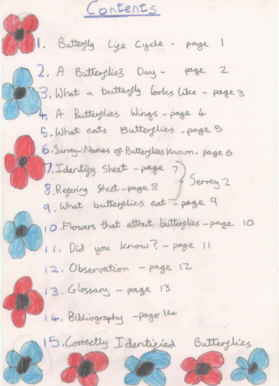 Contents
1. Butterfly Life Cycle - page 1
2. A Butterflies Day - page 2
3. What a butterfly looks like - page 3
4. A Butterflies Wings - page 4
5. What eats Butterflies - page 5
6. Survey - Names of Butterflies Known - page 6
7. Identify Sheet - page 7
8. Recording Sheet - page 8
Survey 2
9. What butterflies eat - page 9
10. Flowers that attract butterflies - page 10
11. Did you know? - page 11
12. Observation - page 12
13. Glossary - page 13
14. Bibliography - page 14
15. Correctly Identified Butterflies